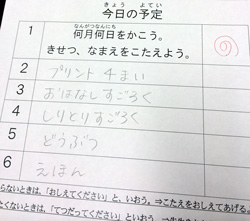 きょう よてい
今日の予定
なんがつなんにち
1 何月何日をかこう。
きせつ、なまえをこたえよう。
2 プリント 4まい
3 おはなしすごろく
4 しりとりすごろく
5 どうぶつ
6 えほん
らないときは、「おしえてください」と、いおう。⇒こたえをおしえてあげる
たくないときは、「てつだってください」といおう。